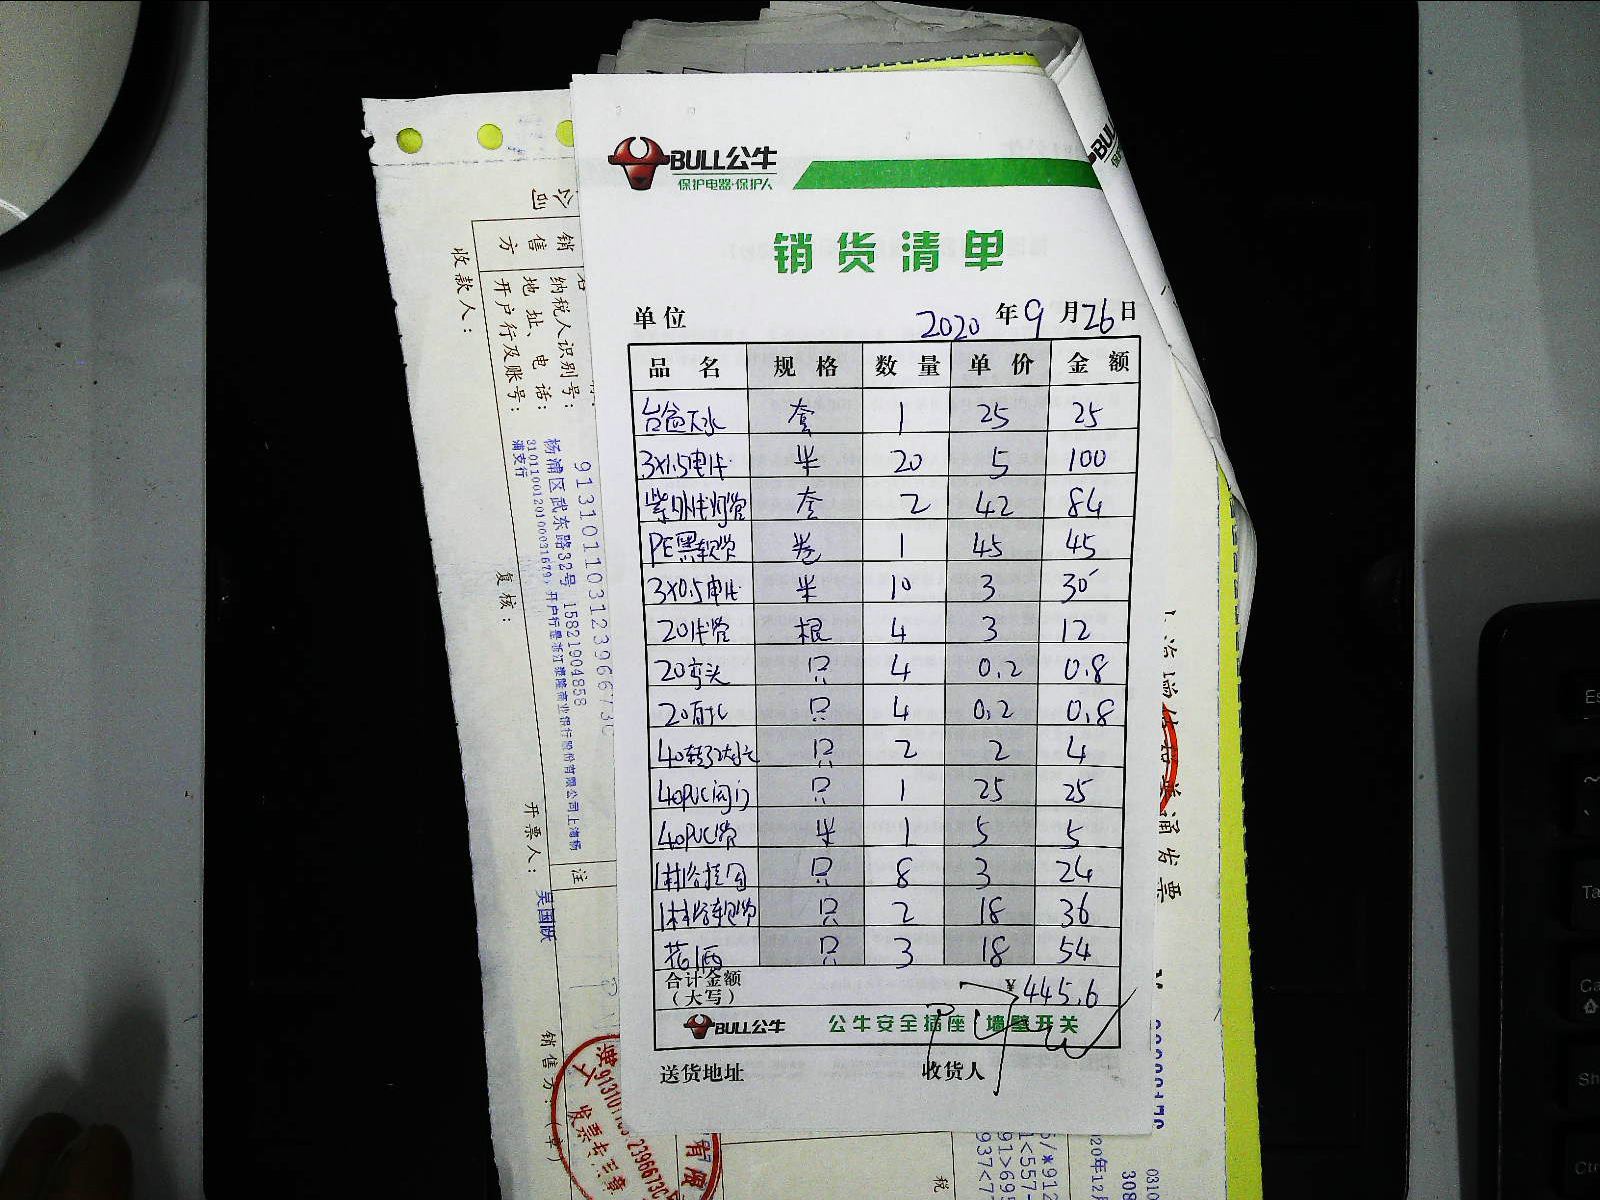 BULL公牛
保护电器·保护人
销货清单
单位 2020 年 9 月 26 日
品名 规格 数量 单价 金额
台盆下水 套 1 25 25
3×1.5电线 米 20 5 100
紫外线灯管 套 2 42 84
PE黑软管 卷 1 45 45
3×0.5电线 米 10 3 30
20线管 根 4 3 12
20弯头 只 4 0.2 0.8
20直接 只 4 0.2 0.8
40 只 2 2 4
40PVC阀门 只 1 25 25
40PVC管 米 1 5 5
淋浴挂 只 8 3 24
淋浴软管 只 2 18 36
花洒 只 3 18 54
合计金额
(大写) ¥445.6
BULL公牛 公牛安全插座 墙壁开关
送货地址 收货人
销售方
纳税人识别号:
地址、电话:
开户行及账号:
收款人:
91310110312396673C
杨浦区武东路32号 15821904858
复核:
开票人: 吴国跃
注
销售方:(章)
发票专用章
通发票